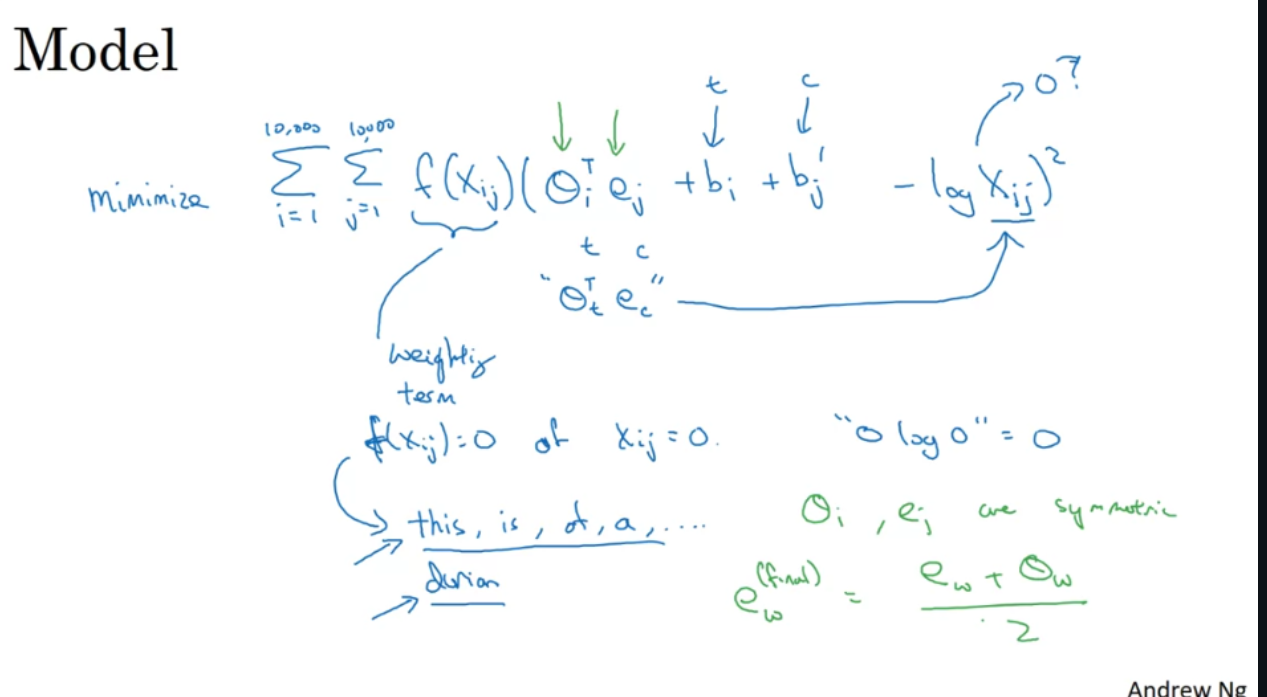 Model
t c 0?
10,000 10,000
minimize Σ Σ f(Xij)(θiᵀ ej + bi + bj' - log Xij)²
i=1 j=1
t c
"θtᵀ ec"
weighting
term
f(Xij)=0 if Xij=0. "0 log 0" = 0
this, is, of, a, ....
durian
θi, ej are symmetric
ew(final) = ew + θw
2
Andrew Ng